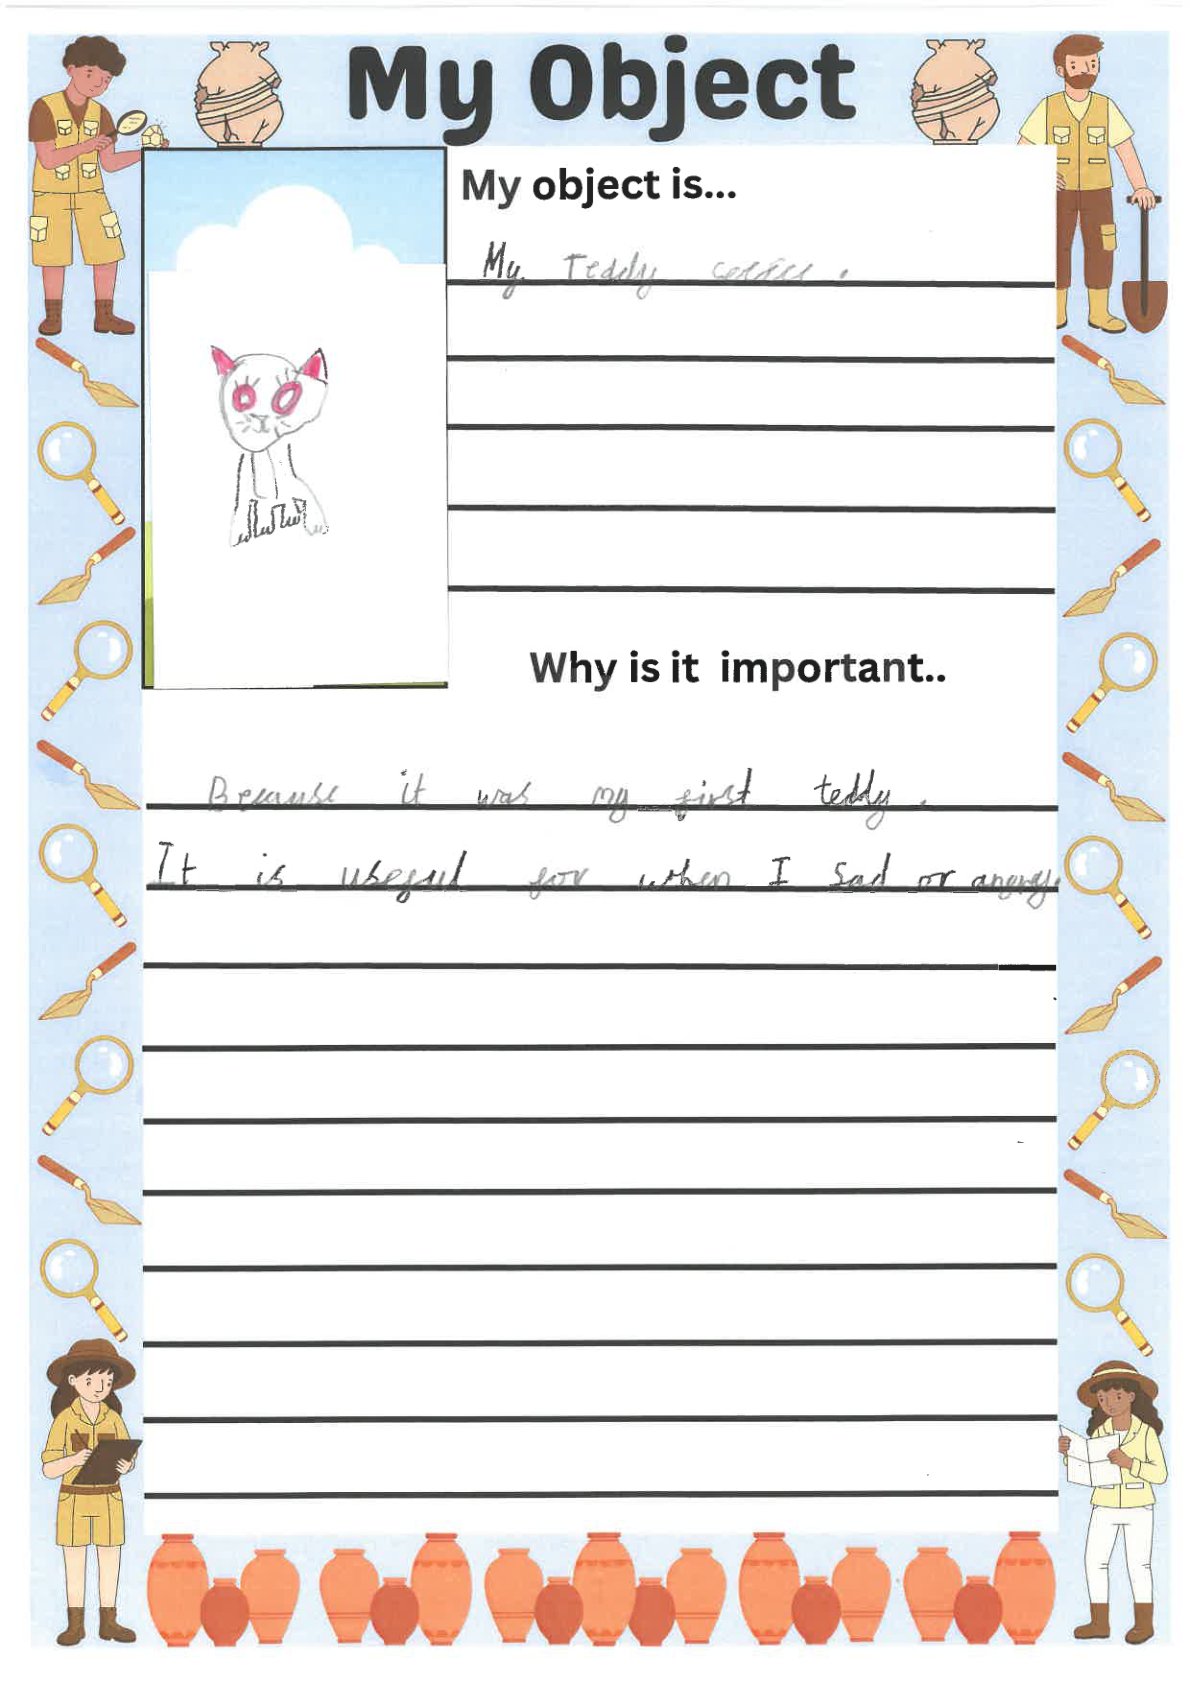 My Object
My object is...
My Teddy
Why is it important..
Because it was my first teddy.
It is useful for when I sad or angry.